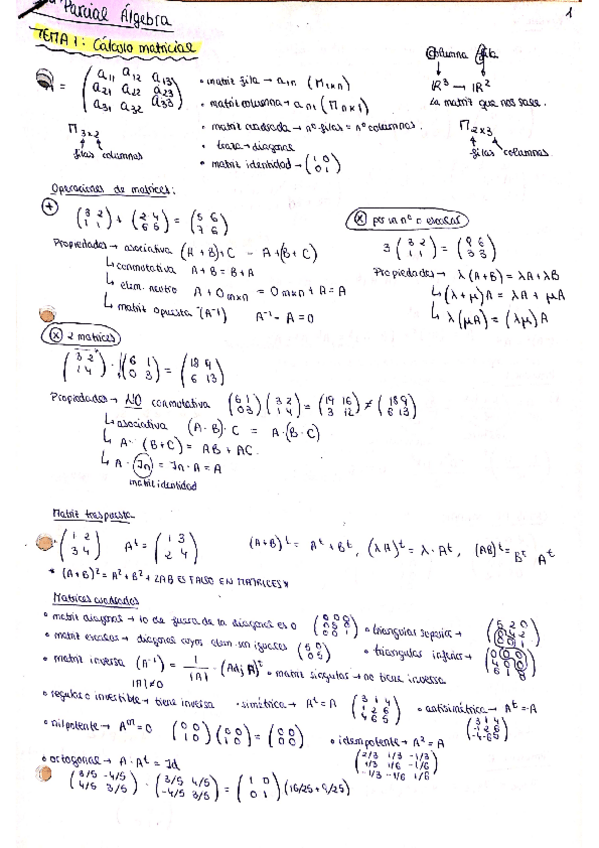 Parcial Álgebra
1
TEMA 1: Cálculo matricial
= ( a11 a12 a13 / a21 a22 a23 / a31 a32 a33 )
• matriz fila → a1n (M1xn)
• matriz columna → an1 (Mnx1)
• matriz cuadrada → nº filas = nº columnas.
• traza → diagonal
• matriz identidad → ( 1 0 / 0 1 )
M3x2
filas columnas
columna fila
ℝ³ → ℝ²
La matriz que nos sale.
M2x3
filas columnas
Operaciones de matrices:
+
( 3 2 / 1 1 ) + ( 2 4 / 6 5 ) = ( 5 6 / 7 6 )
Propiedades → asociativa (A + B)+C = A+(B+C)
↳ conmutativa A+B = B+A
↳ elem. neutro A + 0mxn = 0mxn + A = A
↳ matriz opuesta (A⁻¹) A⁻¹ - A = 0
x por un nº o escalar
3 ( 3 2 / 1 1 ) = ( 9 6 / 3 3 )
Propiedades → λ(A+B) = λA + λB
↳ (λ+μ)A = λA + μA
↳ λ(μA) = (λμ)A
x 2 matrices
( 3 2 / 1 4 ) · ( 6 1 / 0 3 ) = ( 18 9 / 6 13 )
Propiedades → NO conmutativa ( 6 1 / 0 3 ) ( 3 2 / 1 4 ) = ( 19 16 / 3 12 ) ≠ ( 18 9 / 6 13 )
↳ asociativa (A·B)·C = A·(B·C)
↳ A·(B+C) = AB + AC.
↳ A·In = In·A = A
matriz identidad
Matriz traspuesta
( 1 2 / 3 4 ) Aᵗ = ( 1 3 / 2 4 ) (A+B)ᵗ = Aᵗ + Bᵗ, (λA)ᵗ = λ·Aᵗ, (AB)ᵗ = Bᵗ Aᵗ
* (A+B)² = A² + B² + 2AB ES FALSO EN MATRICES *
Matrices cuadradas
• matriz diagonal → lo de fuera de la diagonal es 0
• triangular superior →
• matriz escalar → diagonal cuyos elem. son iguales ( 5 0 / 0 5 )
• triangular inferior →
• matriz inversa (A⁻¹) = 1/|A| · (Adj A)ᵗ
|A| ≠ 0
• matriz singular → no tiene inversa
• regular o invertible → tiene inversa
• simétrica → Aᵗ = A ( 3 1 4 / 1 2 6 / 4 6 5 )
• antisimétrica → Aᵗ = -A ( 3 1 4 / -1 2 6 / -4 -6 5 )
• nilpotente → Aᵐ = 0 ( 0 0 / 1 0 ) ( 0 0 / 1 0 ) = ( 0 0 / 0 0 )
• idempotente → A² = A
( 2/3 1/3 -1/3 / 1/3 1/6 -1/6 / -1/3 -1/6 1/6 )
• ortogonal → A·Aᵗ = Id
( 3/5 -4/5 / 4/5 3/5 ) · ( 3/5 4/5 / -4/5 3/5 ) = ( 1 0 / 0 1 ) (16/25 + 9/25)